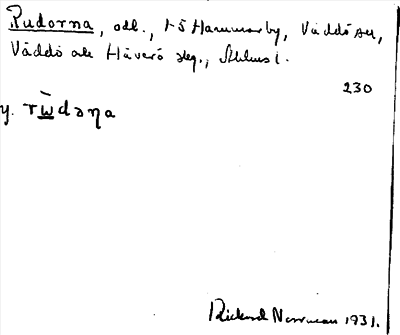 Rudorna, odl., 1-5 Hammarby, Väddö sn,
Väddö och Häverö skg., Sthms l.
230
y. rω̄dəṇa
Rickard Norrman 1931.